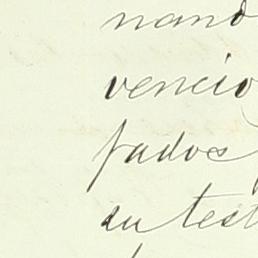 nand
vencio
fados
su test